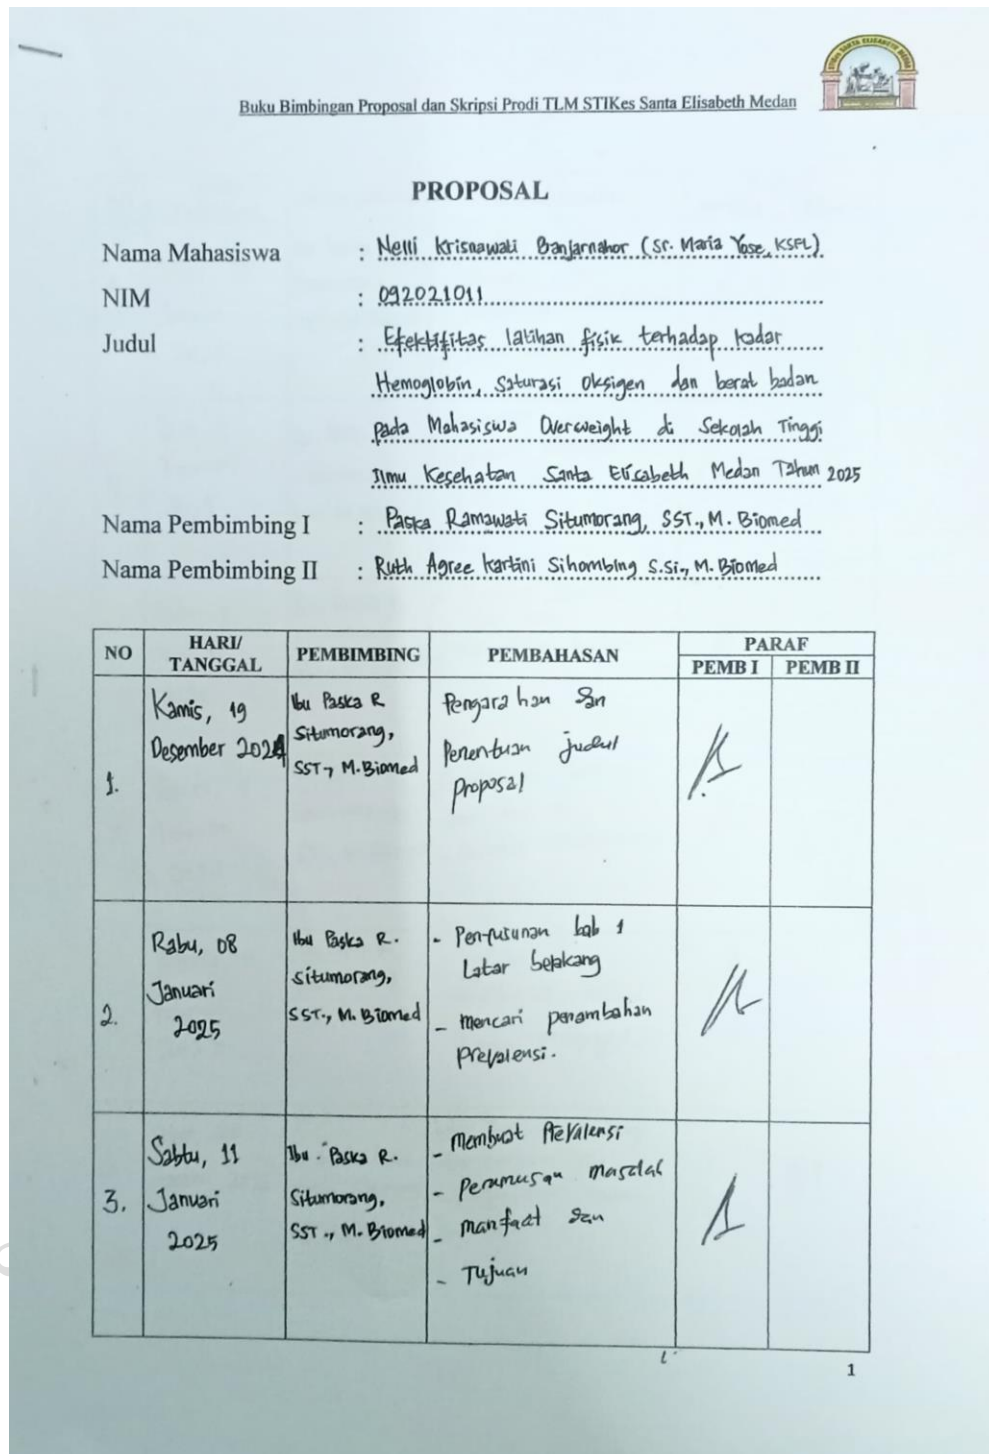 STIKES SANTA ELISABETH MEDAN
Buku Bimbingan Proposal dan Skripsi Prodi TLM STIKes Santa Elisabeth Medan
PROPOSAL
Nama Mahasiswa : Nelli Krisnawati Banjarnahor (Sr. Maria Yose, KSFL)
NIM : 092021011
Judul : Efektifitas latihan fisik terhadap kadar
Hemoglobin, Saturasi Oksigen dan berat badan
pada Mahasiswa Overweight di Sekolah Tinggi
Ilmu Kesehatan Santa Elisabeth Medan Tahun 2025
Nama Pembimbing I : Paska Ramawati Situmorang, SST., M. Biomed
Nama Pembimbing II : Ruth Agree Kartini Sihombing S.Si., M. Biomed
NO HARI/ TANGGAL PEMBIMBING PEMBAHASAN PARAF
PEMB I PEMB II
1.
Kamis, 19
Desember 2024
Ibu Paska R
Situmorang,
SST., M.Biomed
Pengarahan dan
Penentuan judul
Proposal
2.
Rabu, 08
Januari
2025
Ibu Paska R.
Situmorang,
SST., M. Biomed
- Penyusunan bab 1
Latar belakang
- mencari penambahan
Prevalensi.
3.
Sabtu, 11
Januari
2025
Ibu Paska R.
Situmorang,
SST., M. Biomed
- Membuat Prevalensi
- Perumusan masalah
- manfaat dan
- Tujuan
1